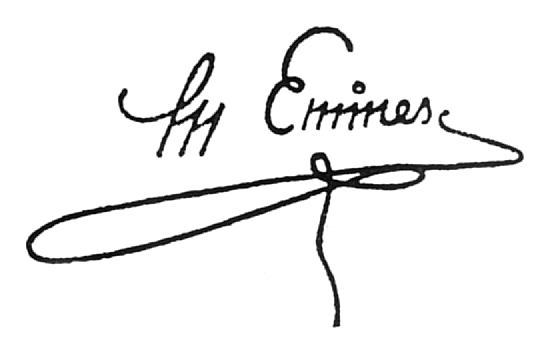 M Eminescu